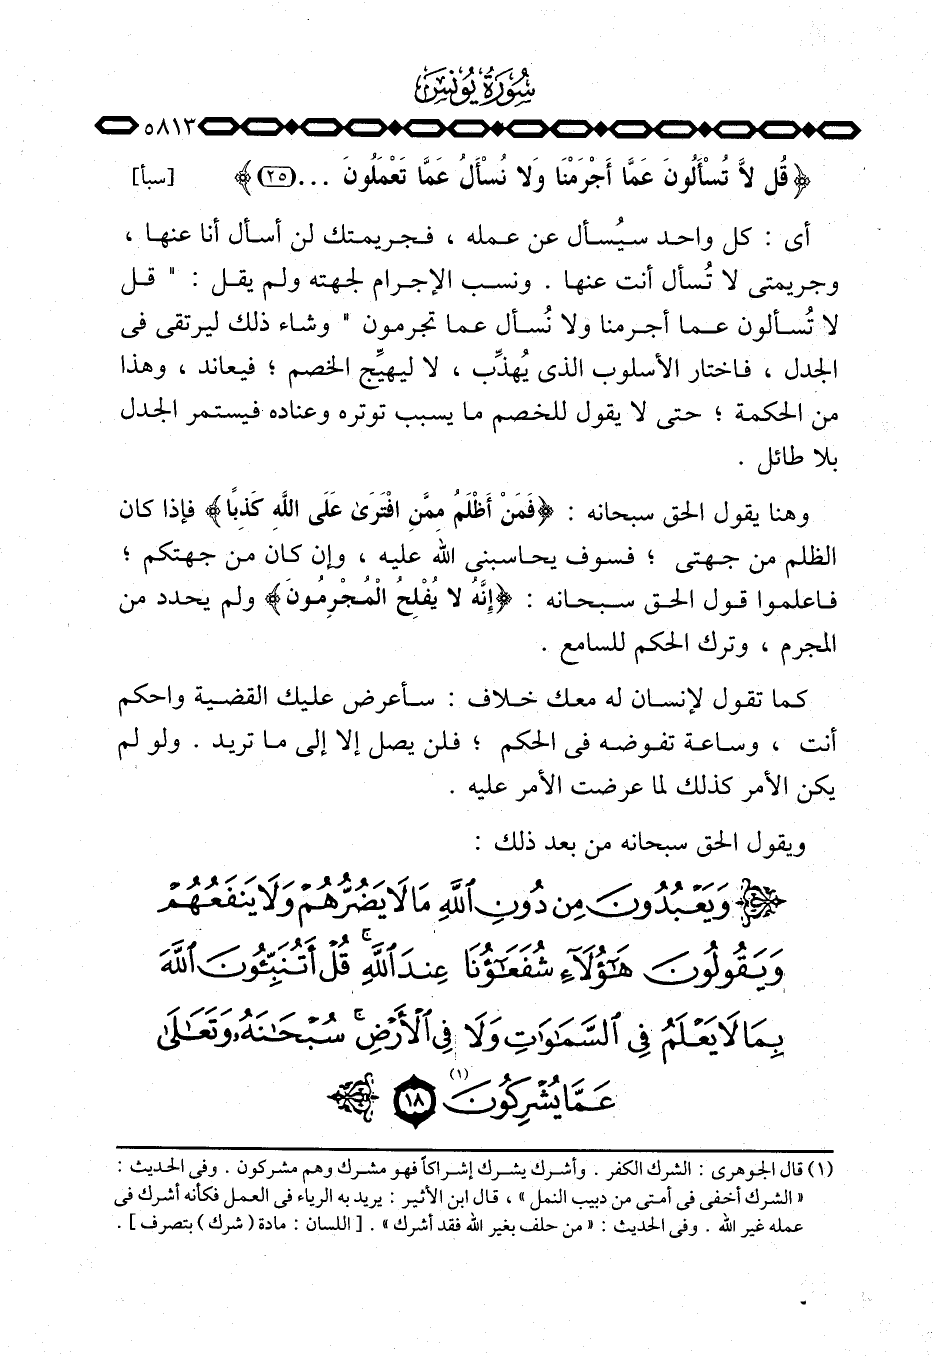 سُورَةُ يُونُسَ
٥٨١٣
﴿ قُل لاَّ تُسْأَلُونَ عَمَّا أَجْرَمْنَا وَلا نُسْأَلُ عَمَّا تَعْمَلُونَ ... (٢٥) ﴾ [سبأ]
أى : كل واحد سيُسأل عن عمله ، فجريمتك لن أسأل أنا عنها ،
وجريمتى لا تُسأل أنت عنها . ونسب الإجرام لجهته ولم يقل : " قل
لا تُسألون عما أجرمنا ولا نُسأل عما تجرمون " وشاء ذلك ليرتقى فى
الجدل ، فاختار الأسلوب الذى يُهذِّب ، لا ليهيِّج الخصم ؛ فيعاند ، وهذا
من الحكمة ؛ حتى لا يقول للخصم ما يسبب توتره وعناده فيستمر الجدل
بلا طائل .
وهنا يقول الحق سبحانه : ﴿فَمَنْ أَظْلَمُ مِمَّنِ افْتَرَىٰ عَلَى اللَّهِ كَذِبًا﴾ فإذا كان
الظلم من جهتى ؛ فسوف يحاسبنى الله عليه ، وإن كان من جهتكم ؛
فاعلموا قول الحق سبحانه : ﴿إِنَّهُ لا يُفْلِحُ الْمُجْرِمُونَ﴾ ولم يحدد من
المجرم ، وترك الحكم للسامع .
كما تقول لإنسان له معك خلاف : سأعرض عليك القضية واحكم
أنت ، وساعة تفوضه فى الحكم ؛ فلن يصل إلا إلى ما تريد . ولو لم
يكن الأمر كذلك لما عرضت الأمر عليه .
ويقول الحق سبحانه من بعد ذلك :
وَيَعْبُدُونَ مِن دُونِ ٱللَّهِ مَا لَا يَضُرُّهُمْ وَلَا يَنفَعُهُمْ
وَيَقُولُونَ هَٰٓؤُلَآءِ شُفَعَٰٓؤُنَا عِندَ ٱللَّهِ ۚ قُلْ أَتُنَبِّـُٔونَ ٱللَّهَ
بِمَا لَا يَعْلَمُ فِى ٱلسَّمَٰوَٰتِ وَلَا فِى ٱلْأَرْضِ ۚ سُبْحَٰنَهُۥ وَتَعَٰلَىٰ
عَمَّا يُشْرِكُونَ (١) ١٨
(١) قال الجوهرى : الشرك الكفر . وأشرك يشرك إشراكاً فهو مشرك وهم مشركون . وفى الحديث :
« الشرك أخفى فى أمتى من دبيب النمل » ، قال ابن الأثير : يريد به الرياء فى العمل فكأنه أشرك فى
عمله غير الله . وفى الحديث : « من حلف بغير الله فقد أشرك » . [ اللسان : مادة ( شرك ) بتصرف ] .